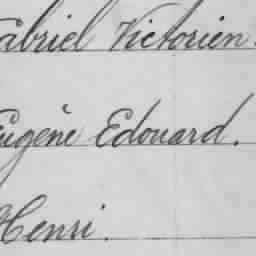 Gabriel Victorien.
Eugène Edouard.
Henri.